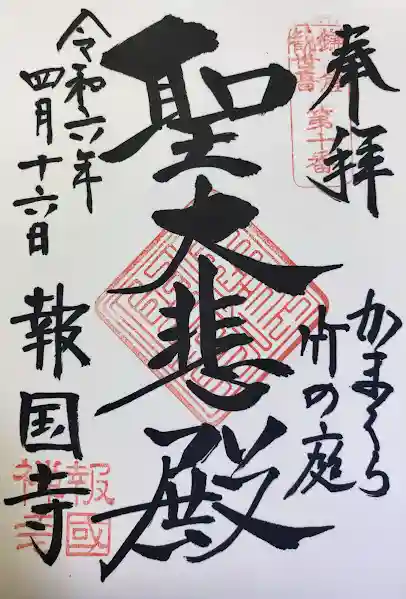 奉拝
鎌倉
観世音 第十番
かまくら
竹の庭
聖大悲殿
令和六年
四月十六日
報国寺
報國
禅寺